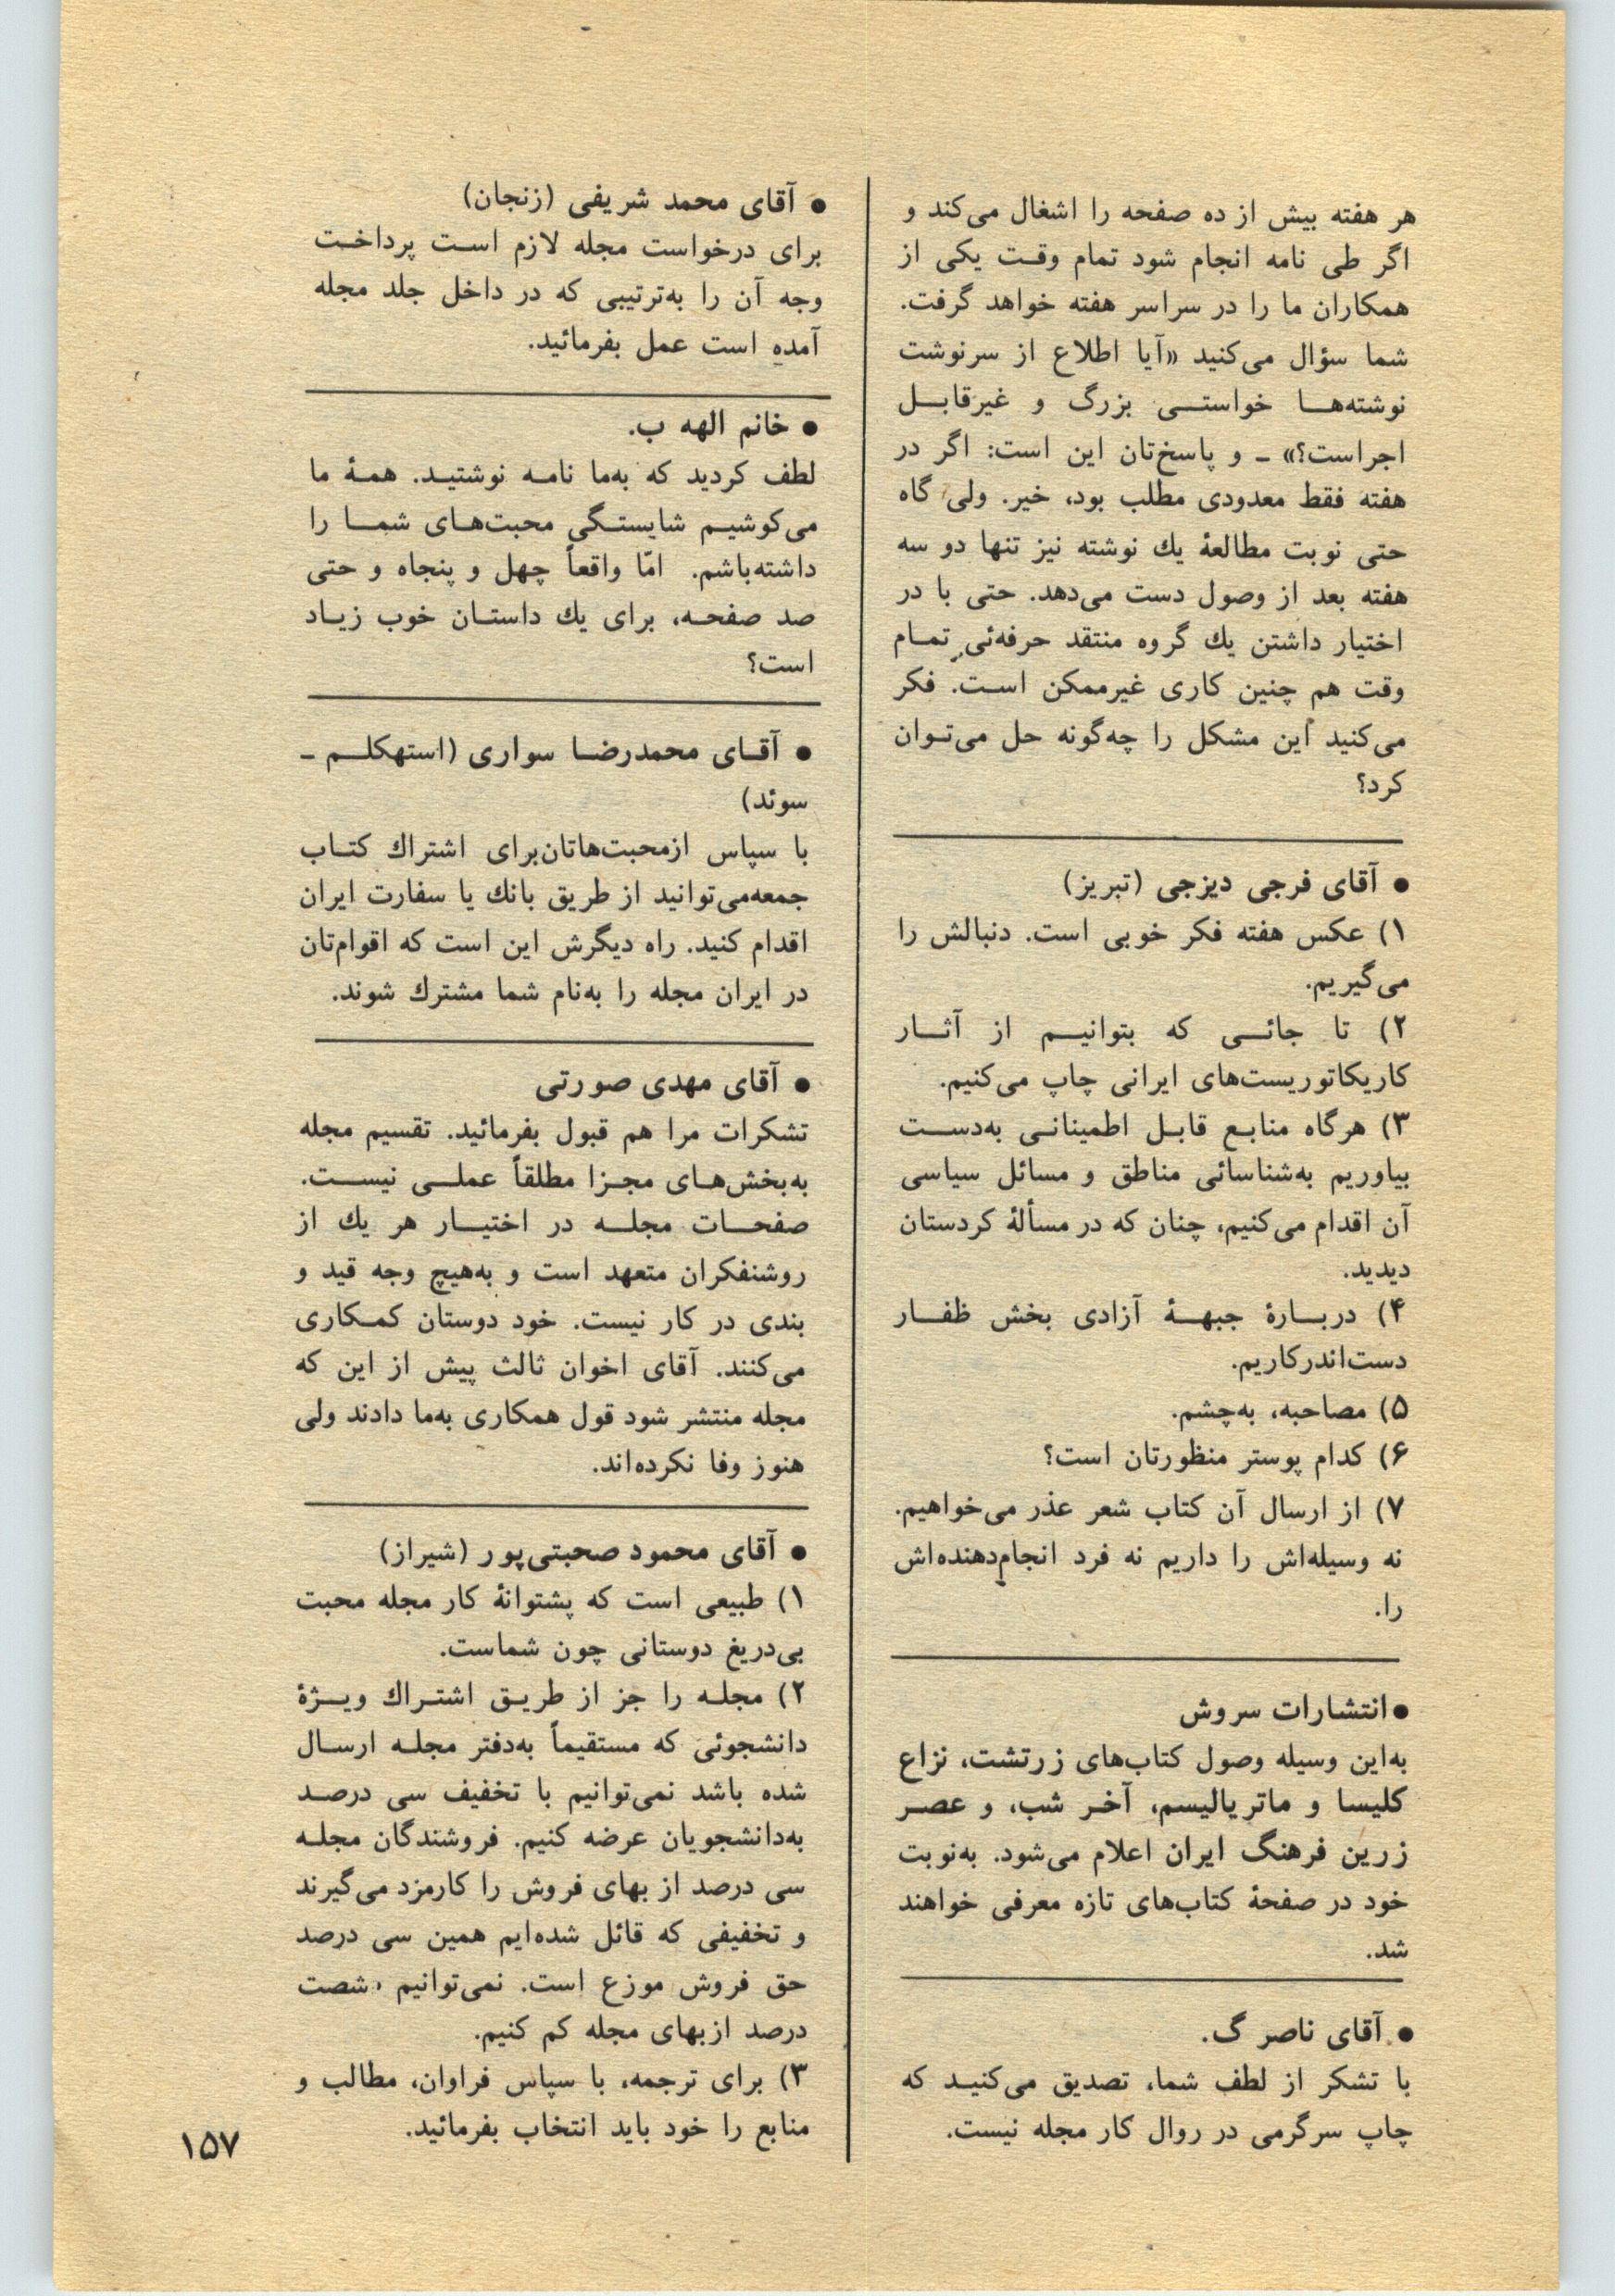 هر هفته بیش از ده صفحه را اشغال می‌کند و
اگر طی نامه انجام شود تمام وقت یکی از
همکاران ما را در سراسر هفته خواهد گرفت.
شما سؤال می‌کنید «آیا اطلاع از سرنوشت
نوشته‌ها خواستی بزرگ و غیرقابل
اجراست؟» ـ و پاسخ‌تان این است: اگر در
هفته فقط معدودی مطلب بود، خیر. ولی گاه
حتی نوبت مطالعهٔ یك نوشته نیز تنها دو سه
هفته بعد از وصول دست می‌دهد. حتی با در
اختیار داشتن یك گروه منتقد حرفه‌ئیِ تمام
وقت هم چنین کاری غیرممکن است. فکر
می‌کنید این مشکل را چه‌گونه حل می‌توان
کرد؟
● آقای فرجی دیزجی (تبریز)
۱) عکس هفته فکر خوبی است. دنبالش را
می‌گیریم.
۲) تا جائی که بتوانیم از آثار
کاریکاتوریست‌های ایرانی چاپ می‌کنیم.
۳) هرگاه منابع قابل اطمینانی به‌دست
بیاوریم به‌شناسائی مناطق و مسائل سیاسی
آن اقدام می‌کنیم، چنان که در مسألهٔ کردستان
دیدید.
۴) دربارهٔ جبههٔ آزادی بخش ظفار
دست‌اندرکاریم.
۵) مصاحبه، به‌چشم.
۶) کدام پوستر منظورتان است؟
۷) از ارسال آن کتاب شعر عذر می‌خواهیم.
نه وسیله‌اش را داریم نه فرد انجام‌دهنده‌اش
را.
● انتشارات سروش
به‌این وسیله وصول کتاب‌های زرتشت، نزاع
کلیسا و ماتریالیسم، آخر شب، و عصر
زرین فرهنگ ایران اعلام می‌شود. به‌نوبت
خود در صفحهٔ کتاب‌های تازه معرفی خواهند
شد.
● آقای ناصر گ.
با تشکر از لطف شما، تصدیق می‌کنید که
چاپ سرگرمی در روال کار مجله نیست.
● آقای محمد شریفی (زنجان)
برای درخواست مجله لازم است پرداخت
وجه آن را به‌ترتیبی که در داخل جلد مجله
آمده است عمل بفرمائید.
● خانم الهه ب.
لطف کردید که به‌ما نامه نوشتید. همهٔ ما
می‌کوشیم شایستگی محبت‌های شما را
داشته‌باشم. امّا واقعاً چهل و پنجاه و حتی
صد صفحه، برای یك داستان خوب زیاد
است؟
● آقای محمدرضا سواری (استهکلم ـ
سوئد)
با سپاس ازمحبت‌هاتان‌برای اشتراك کتاب
جمعه‌می‌توانید از طریق بانك یا سفارت ایران
اقدام کنید. راه دیگرش این است که اقوام‌تان
در ایران مجله را به‌نام شما مشترك شوند.
● آقای مهدی صورتی
تشکرات مرا هم قبول بفرمائید. تقسیم مجله
به‌بخش‌های مجزا مطلقاً عملی نیست.
صفحات مجله در اختیار هر یك از
روشنفکران متعهد است و به‌هیچ وجه قید و
بندی در کار نیست. خود دوستان کمکاری
می‌کنند. آقای اخوان ثالث پیش از این که
مجله منتشر شود قول همکاری به‌ما دادند ولی
هنوز وفا نکرده‌اند.
● آقای محمود صحبتی‌پور (شیراز)
۱) طبیعی است که پشتوانهٔ کار مجله محبت
بی‌دریغ دوستانی چون شماست.
۲) مجله را جز از طریق اشتراك ویژهٔ
دانشجوئی که مستقیماً به‌دفتر مجله ارسال
شده باشد نمی‌توانیم با تخفیف سی درصد
به‌دانشجویان عرضه کنیم. فروشندگان مجله
سی درصد از بهای فروش را کارمزد می‌گیرند
و تخفیفی که قائل شده‌ایم همین سی درصد
حق فروش موزع است. نمی‌توانیم شصت
درصد ازبهای مجله کم کنیم.
۳) برای ترجمه، با سپاس فراوان، مطالب و
منابع را خود باید انتخاب بفرمائید.
۱۵۷